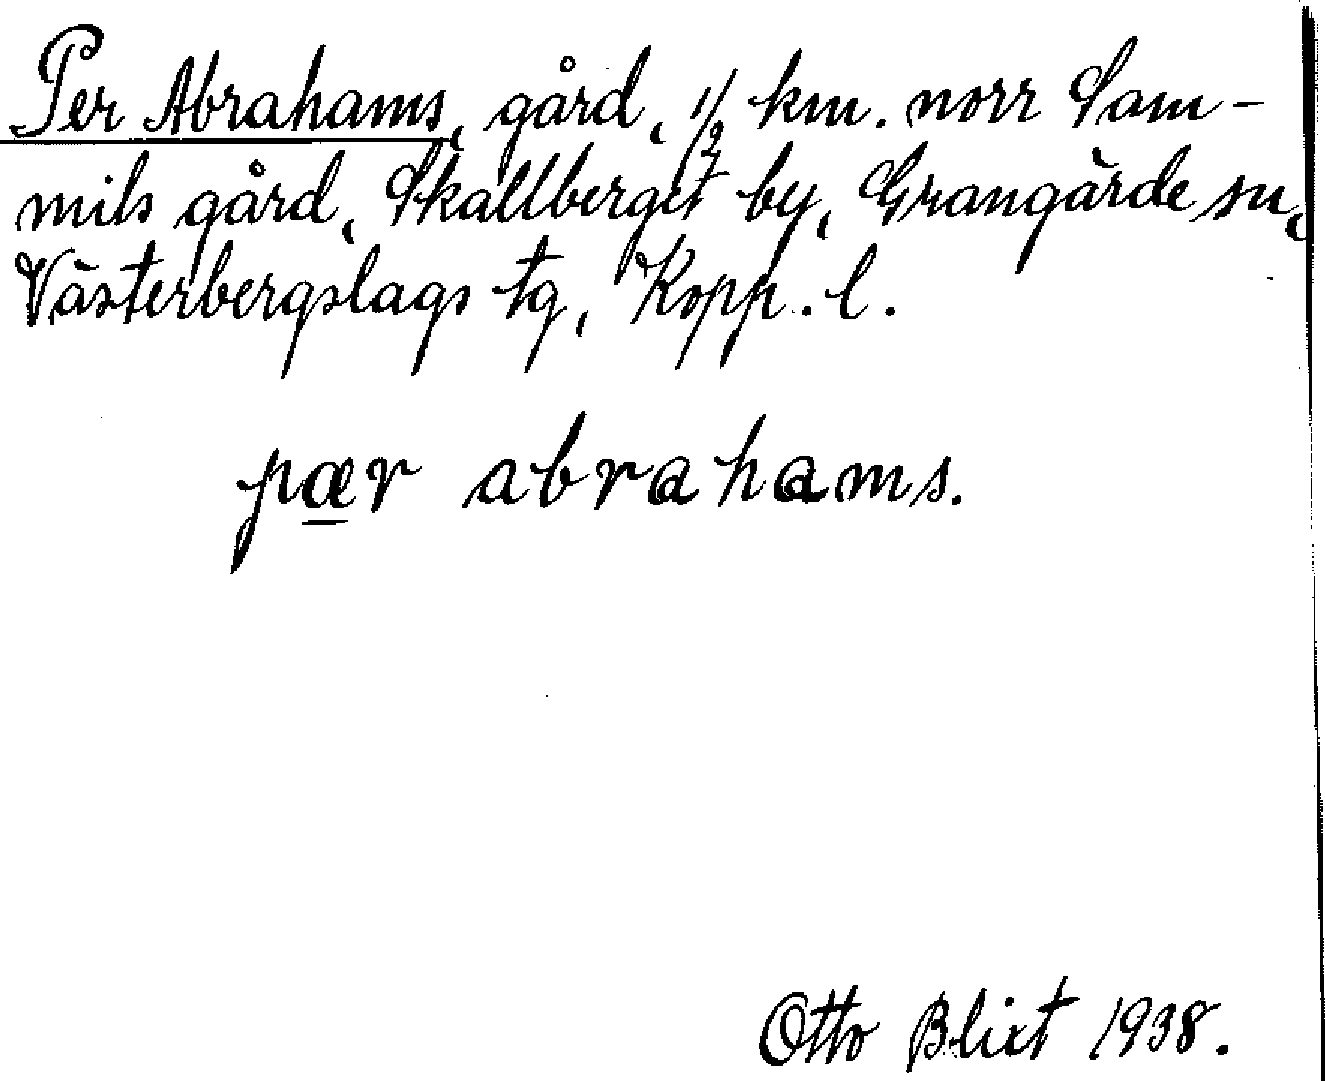 Per Abrahams, gård, 1/2 km. norr Sam-
mils gård, Skallberget by, Grangärde sn,
Västerbergslags tg, Kopp. l.
pær abrahams.
Otto Blixt 1938.